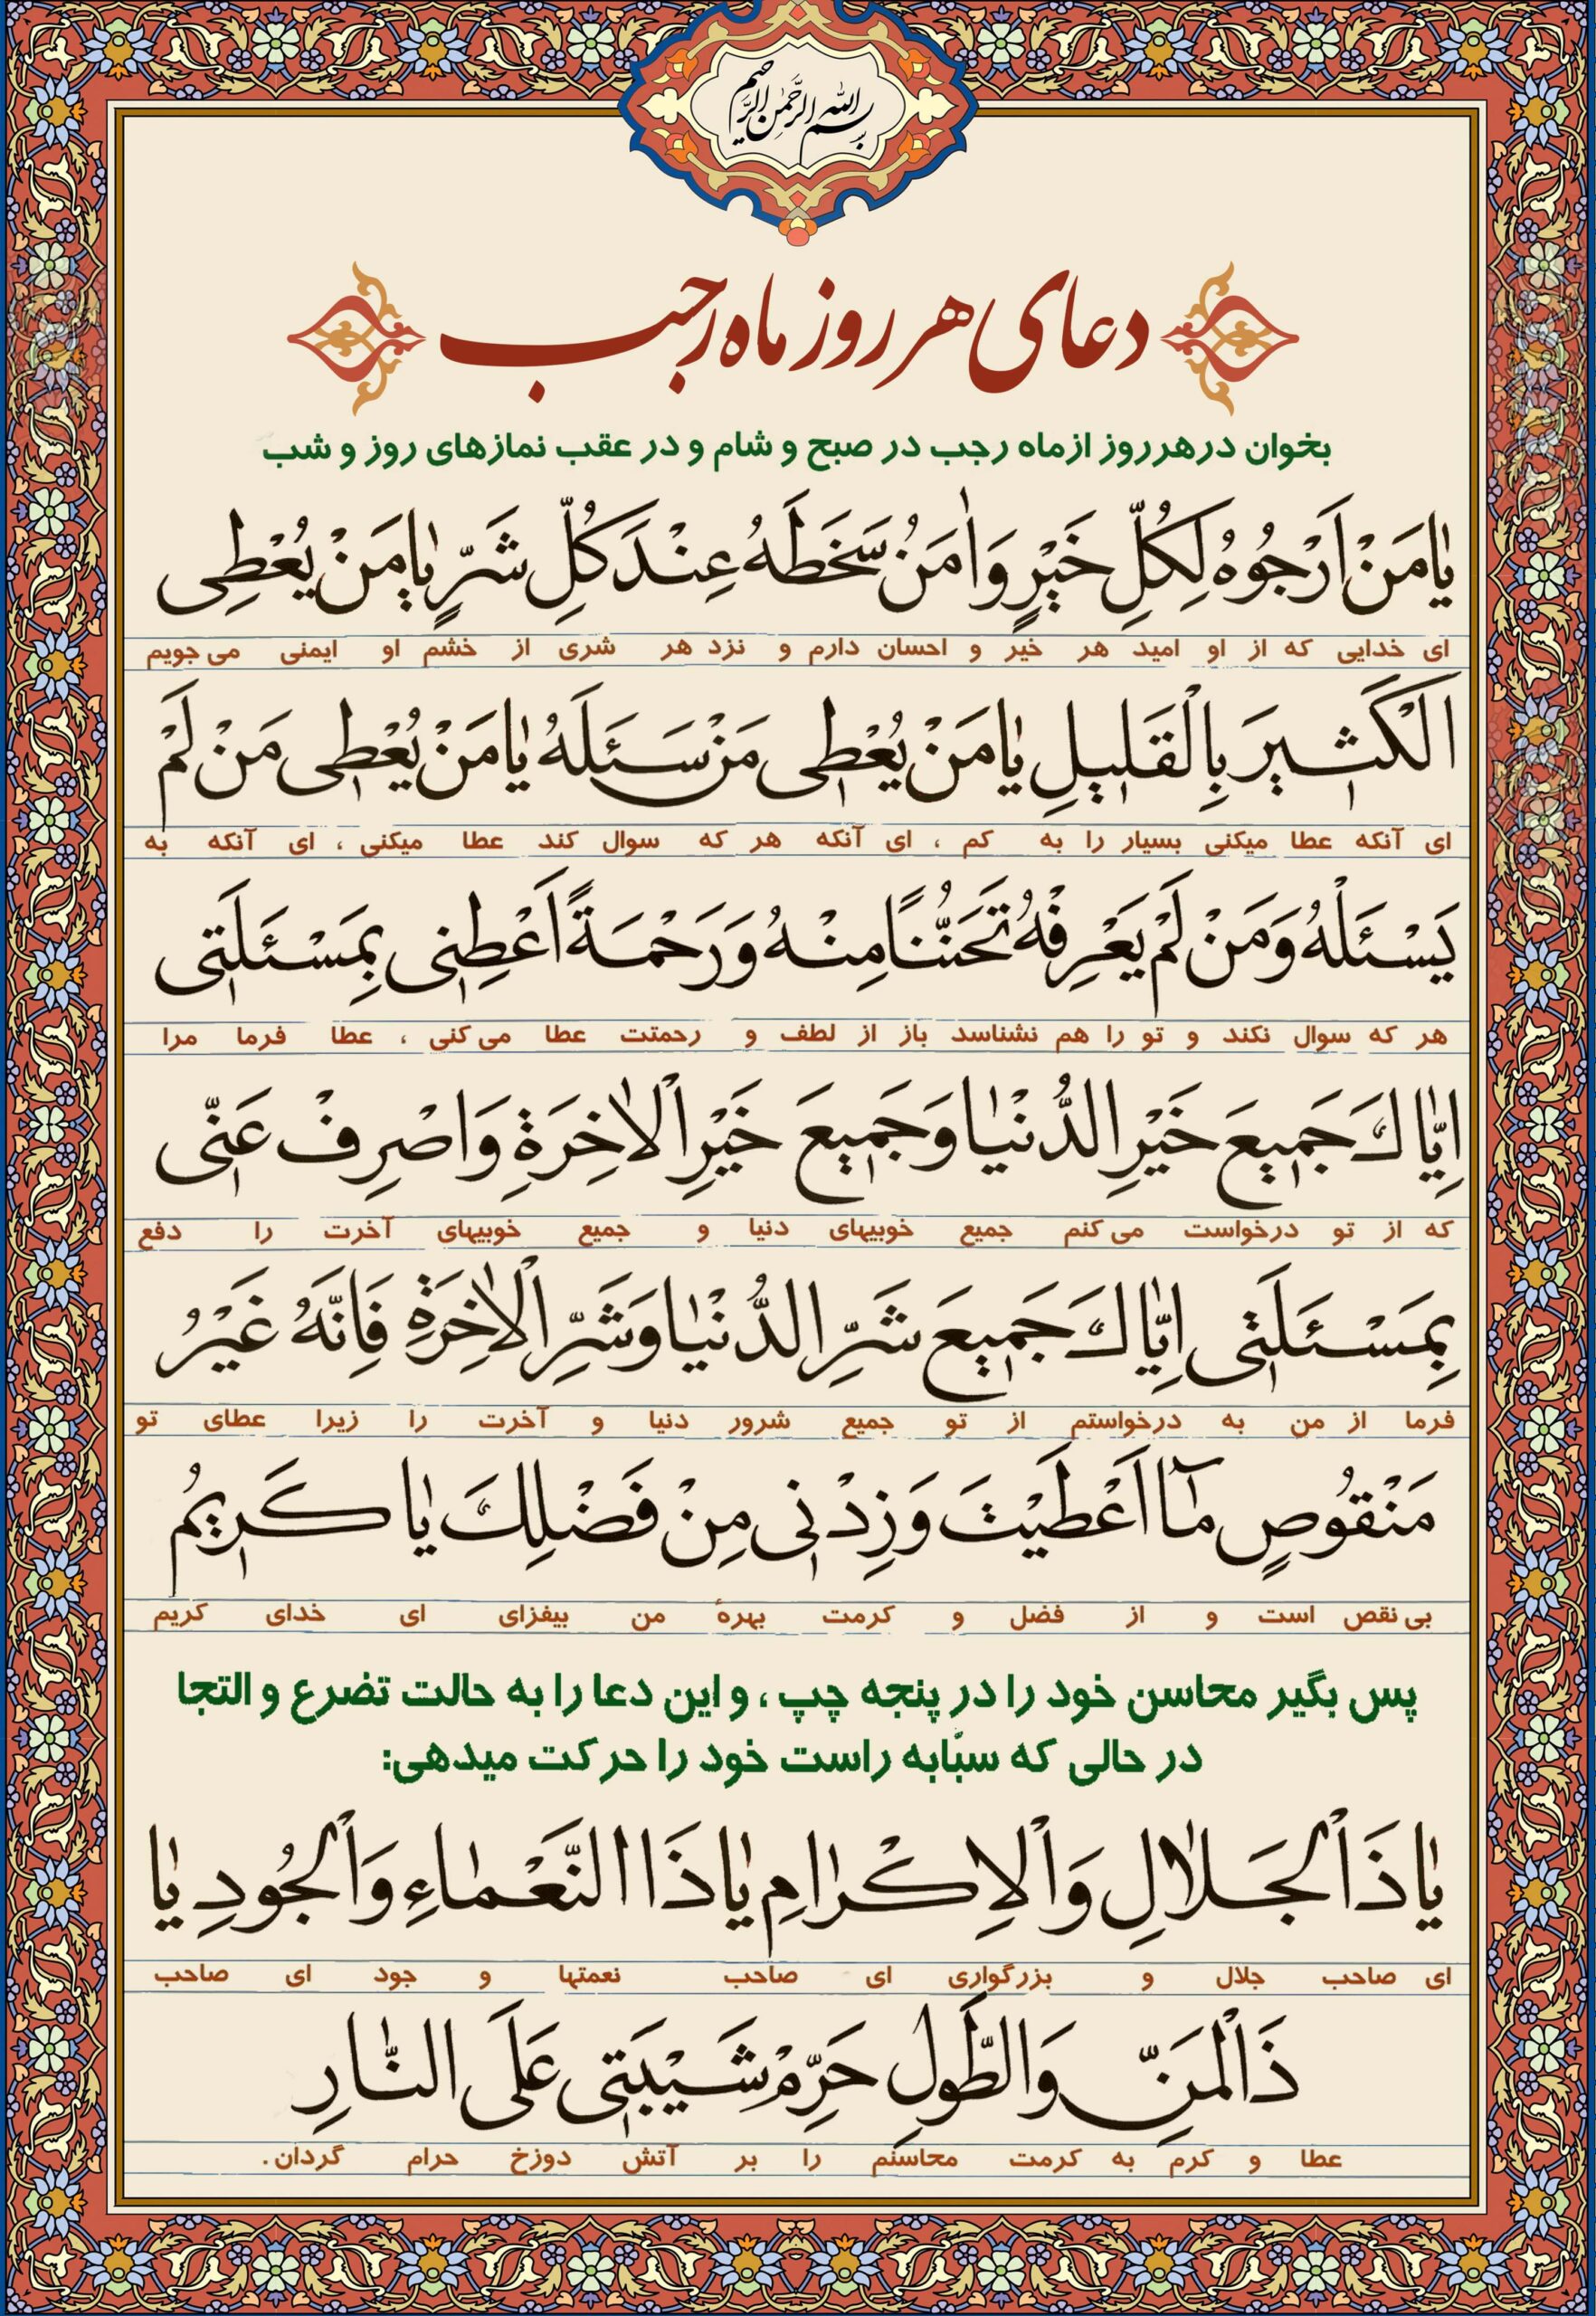 بسم الله الرحمن الرحیم
دعای هر روز ماه رجب
بخوان در هر روز از ماه رجب در صبح و شام و در عقب نمازهای روز و شب
یٰا مَنْ اَرْجُوهُ لِكُلِّ خَیْرٍ وَ اٰمَنُ سَخَطَهُ عِنْدَ كُلِّ شَرٍّ یٰا مَنْ یُعْطِی
ای خدایی که از او امید هر خیر و احسان دارم و نزد هر شری از خشم او ایمنی می جویم
الْكَثیرَ بِالْقَلیلِ یٰا مَنْ یُعْطی مَنْ سَئَلَهُ یٰا مَنْ یُعْطی مَنْ لَمْ
ای آنکه عطا میکنی بسیار را به کم ، ای آنکه هر که سوال کند عطا میکنی ، ای آنکه به
یَسْئَلْهُ وَ مَنْ لَمْ یَعْرِفْهُ تَحَنُّنًا مِنْهُ وَ رَحْمَةً اَعْطِنی بِمَسْئَلَتی
هر که سوال نکند و تو را هم نشناسد باز از لطف و رحمتت عطا می کنی ، عطا فرما مرا
اِیّٰاكَ جَمیعَ خَیْرِ الدُّنْیٰا وَ جَمیعَ خَیْرِ الْاٰخِرَةِ وَ اصْرِفْ عَنّی
که از تو درخواست می کنم جمیع خوبیهای دنیا و جمیع خوبیهای آخرت را دفع
بِمَسْئَلَتی اِیّٰاكَ جَمیعَ شَرِّ الدُّنْیٰا وَ شَرِّ الْاٰخِرَةِ فَاِنَّهُ غَیْرُ
فرما از من به درخواستم از تو جمیع شرور دنیا و آخرت را زیرا عطای تو
مَنْقُوصٍ مٰا اَعْطَیْتَ وَ زِدْنی مِنْ فَضْلِكَ یٰا كَریمُ
بی نقص است و از فضل و کرمت بهرهٔ من بیفزای ای خدای کریم
پس بگیر محاسن خود را در پنجه چپ ، و این دعا را به حالت تضرع و التجا
در حالی که سبّابه راست خود را حرکت میدهی:
یٰا ذَا الْجَلٰالِ وَ الْاِكْرٰامِ یٰا ذَا النَّعْمٰاءِ وَ الْجُودِ یٰا
ای صاحب جلال و بزرگواری ای صاحب نعمتها و جود ای صاحب
ذَا الْمَنِّ وَ الطَّوْلِ حَرِّمْ شَیْبَتی عَلَى النّٰارِ
عطا و کرم به کرمت محاسنم را بر آتش دوزخ حرام گردان.